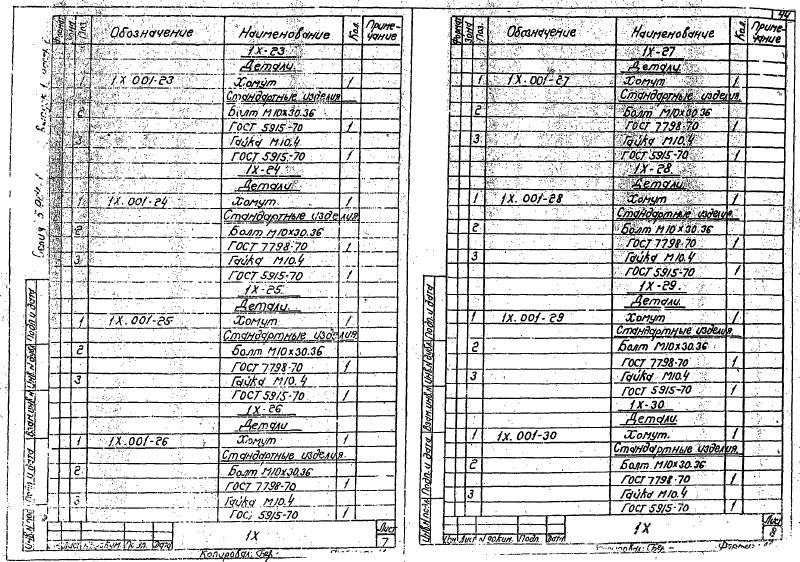 44
Формат Зона Поз. Обозначение Наименование Кол. Приме-чание
1Х-23
Детали
1 1Х.001-23 Хомут 1
Стандартные изделия
2 Болт М10×30.36
ГОСТ 5915-70 1
3 Гайка М10.4
ГОСТ 5915-70 1
1Х-24
Детали
1 1Х.001-24 Хомут 1
Стандартные изделия
2 Болт М10×30.36
ГОСТ 7798-70 1
3 Гайка М10.4
ГОСТ 5915-70 1
1Х-25
Детали
1 1Х.001-25 Хомут 1
Стандартные изделия
2 Болт М10×30.36
ГОСТ 7798-70 1
3 Гайка М10.4
ГОСТ 5915-70 1
1Х-26
Детали
1 1Х.001-26 Хомут 1
Стандартные изделия
2 Болт М10×30.36
ГОСТ 7798-70 1
3 Гайка М10.4
ГОСТ 5915-70 1
1Х
Лист
7
Копировал:
Формат Зона Поз. Обозначение Наименование Кол. Приме-чание
1Х-27
Детали
1 1Х.001-27 Хомут 1
Стандартные изделия
2 Болт М10×30.36
ГОСТ 7798-70 1
3 Гайка М10.4
ГОСТ 5915-70 1
1Х-28
Детали
1 1Х.001-28 Хомут 1
Стандартные изделия
2 Болт М10×30.36
ГОСТ 7798-70 1
3 Гайка М10.4
ГОСТ 5915-70 1
1Х-29
Детали
1 1Х.001-29 Хомут 1
Стандартные изделия
2 Болт М10×30.36
ГОСТ 7798-70 1
3 Гайка М10.4
ГОСТ 5915-70 1
1Х-30
Детали
1 1Х.001-30 Хомут. 1
Стандартные изделия
2 Болт М10×30.36
ГОСТ 7798-70 1
3 Гайка М10.4
ГОСТ 5915-70 1
1Х
Лист
8
Изм Лист № докум. Подп. Дата